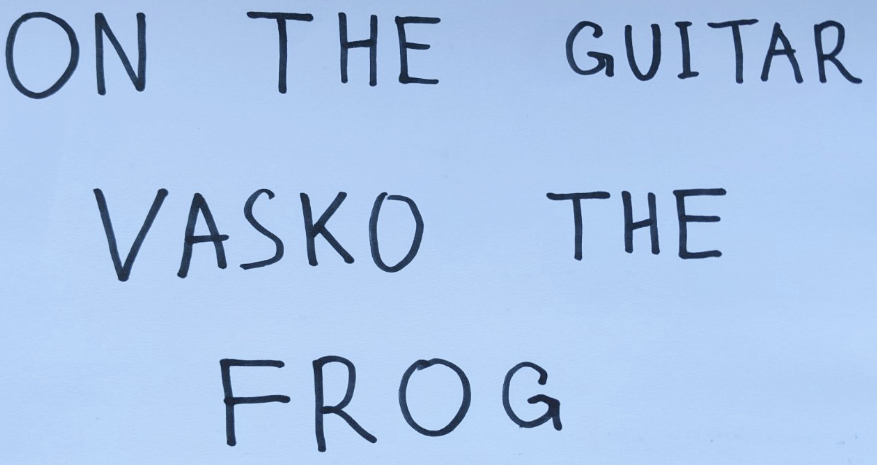 ON THE GUITAR
VASKO THE
FROG